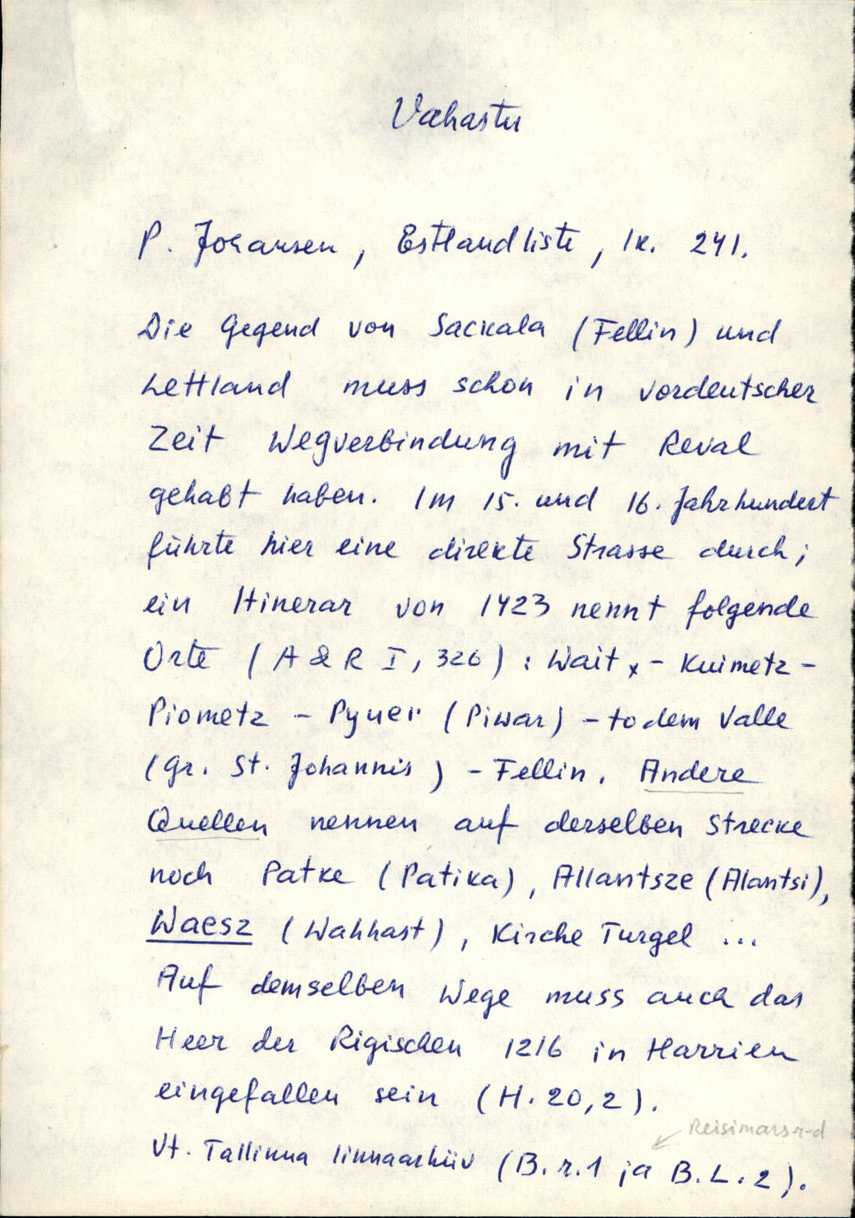 Vahastu
P. Johansen, Estlandliste, lk. 241.
Die Gegend von Sackala (Fellin) und
Lettland muss schon in vordeutscher
Zeit Wegverbindung mit Reval
gehabt haben. Im 15. und 16. Jahrhundert
führte hier eine direkte Strasse durch;
ein Itinerar von 1423 nennt folgende
Orte (A & R I, 326) : Wait x - Kuimetz -
Piometz - Pyner (Piwar) - to dem Valle
(Gr. St. Johannis) - Fellin. Andere
Quellen nennen auf derselben Strecke
noch Patke (Patika), Allantsze (Alantsi),
Waesz (Wahhast), Kirche Turgel ...
Auf demselben Wege muss auch das
Heer der Rigischen 1216 in Harrien
eingefallen sein (H. 20,2).
Reisimarsr-d
Vt. Tallinna linnaarhiiv (B. r. 1 ja B. L. 2).